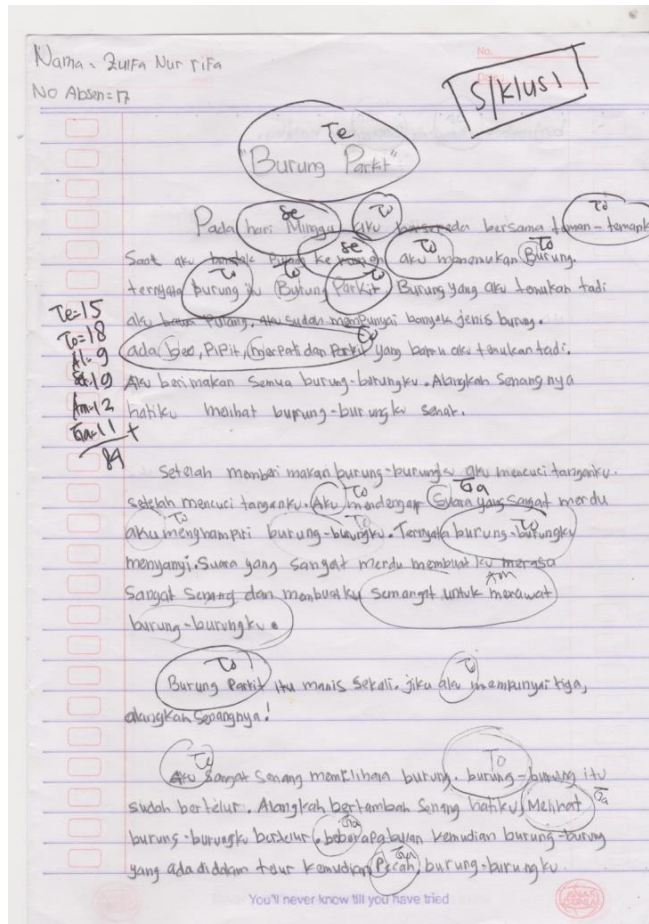 Nama : Zulfa Nur rifa
No.
No Absen = 17
SIKLUS I
Te
"Burung Parkit"
se To To
Pada hari Minggu aku bersepeda bersama teman-temank
se To To
Saat aku ke aku menemukan Burung.
To To To
ternyata burung itu Burung Parkit Burung yang aku temukan tadi
Te=15
aku bawa Pulang. aku sudah mempunyai banyak jenis burung.
To=18
To
ada beo, Pipit, merpati dan Parkit yang baru aku temukan tadi.
Al=9
Se=19
Aku beri makan Semua burung-burungku. Alangkah Senangnya
Am=12
hatiku melihat burung-burungku sehat.
Ga=11 +
84
Setelah memberi makan burung-burungku aku mencuci tanganku.
To Ga
setelah mencuci tanganku. Aku mendengar Suara yang sangat merdu
To To To
aku menghampiri burung-burungku. Ternyata burung-burungku
menyanyi. Suara yang sangat merdu membuat ku merasa
Am
Sangat Senang dan membuatku Semangat untuk merawat
burung-burungku.
To To
Burung Parkit itu manis sekali. jika aku mempunyai tiga,
alangkah Senangnya!
To To
Aku Sangat Senang memelihara burung. burung-burung itu
Ga
sudah bertelur. Alangkah bertambah Senang hatiku Melihat
Ga
burung-burungku bertelur. beberapa bulan kemudian burung-burung
Ga
yang ada didalam telur kemudian Pecah, burung-burungku
You'll never know till you have tried